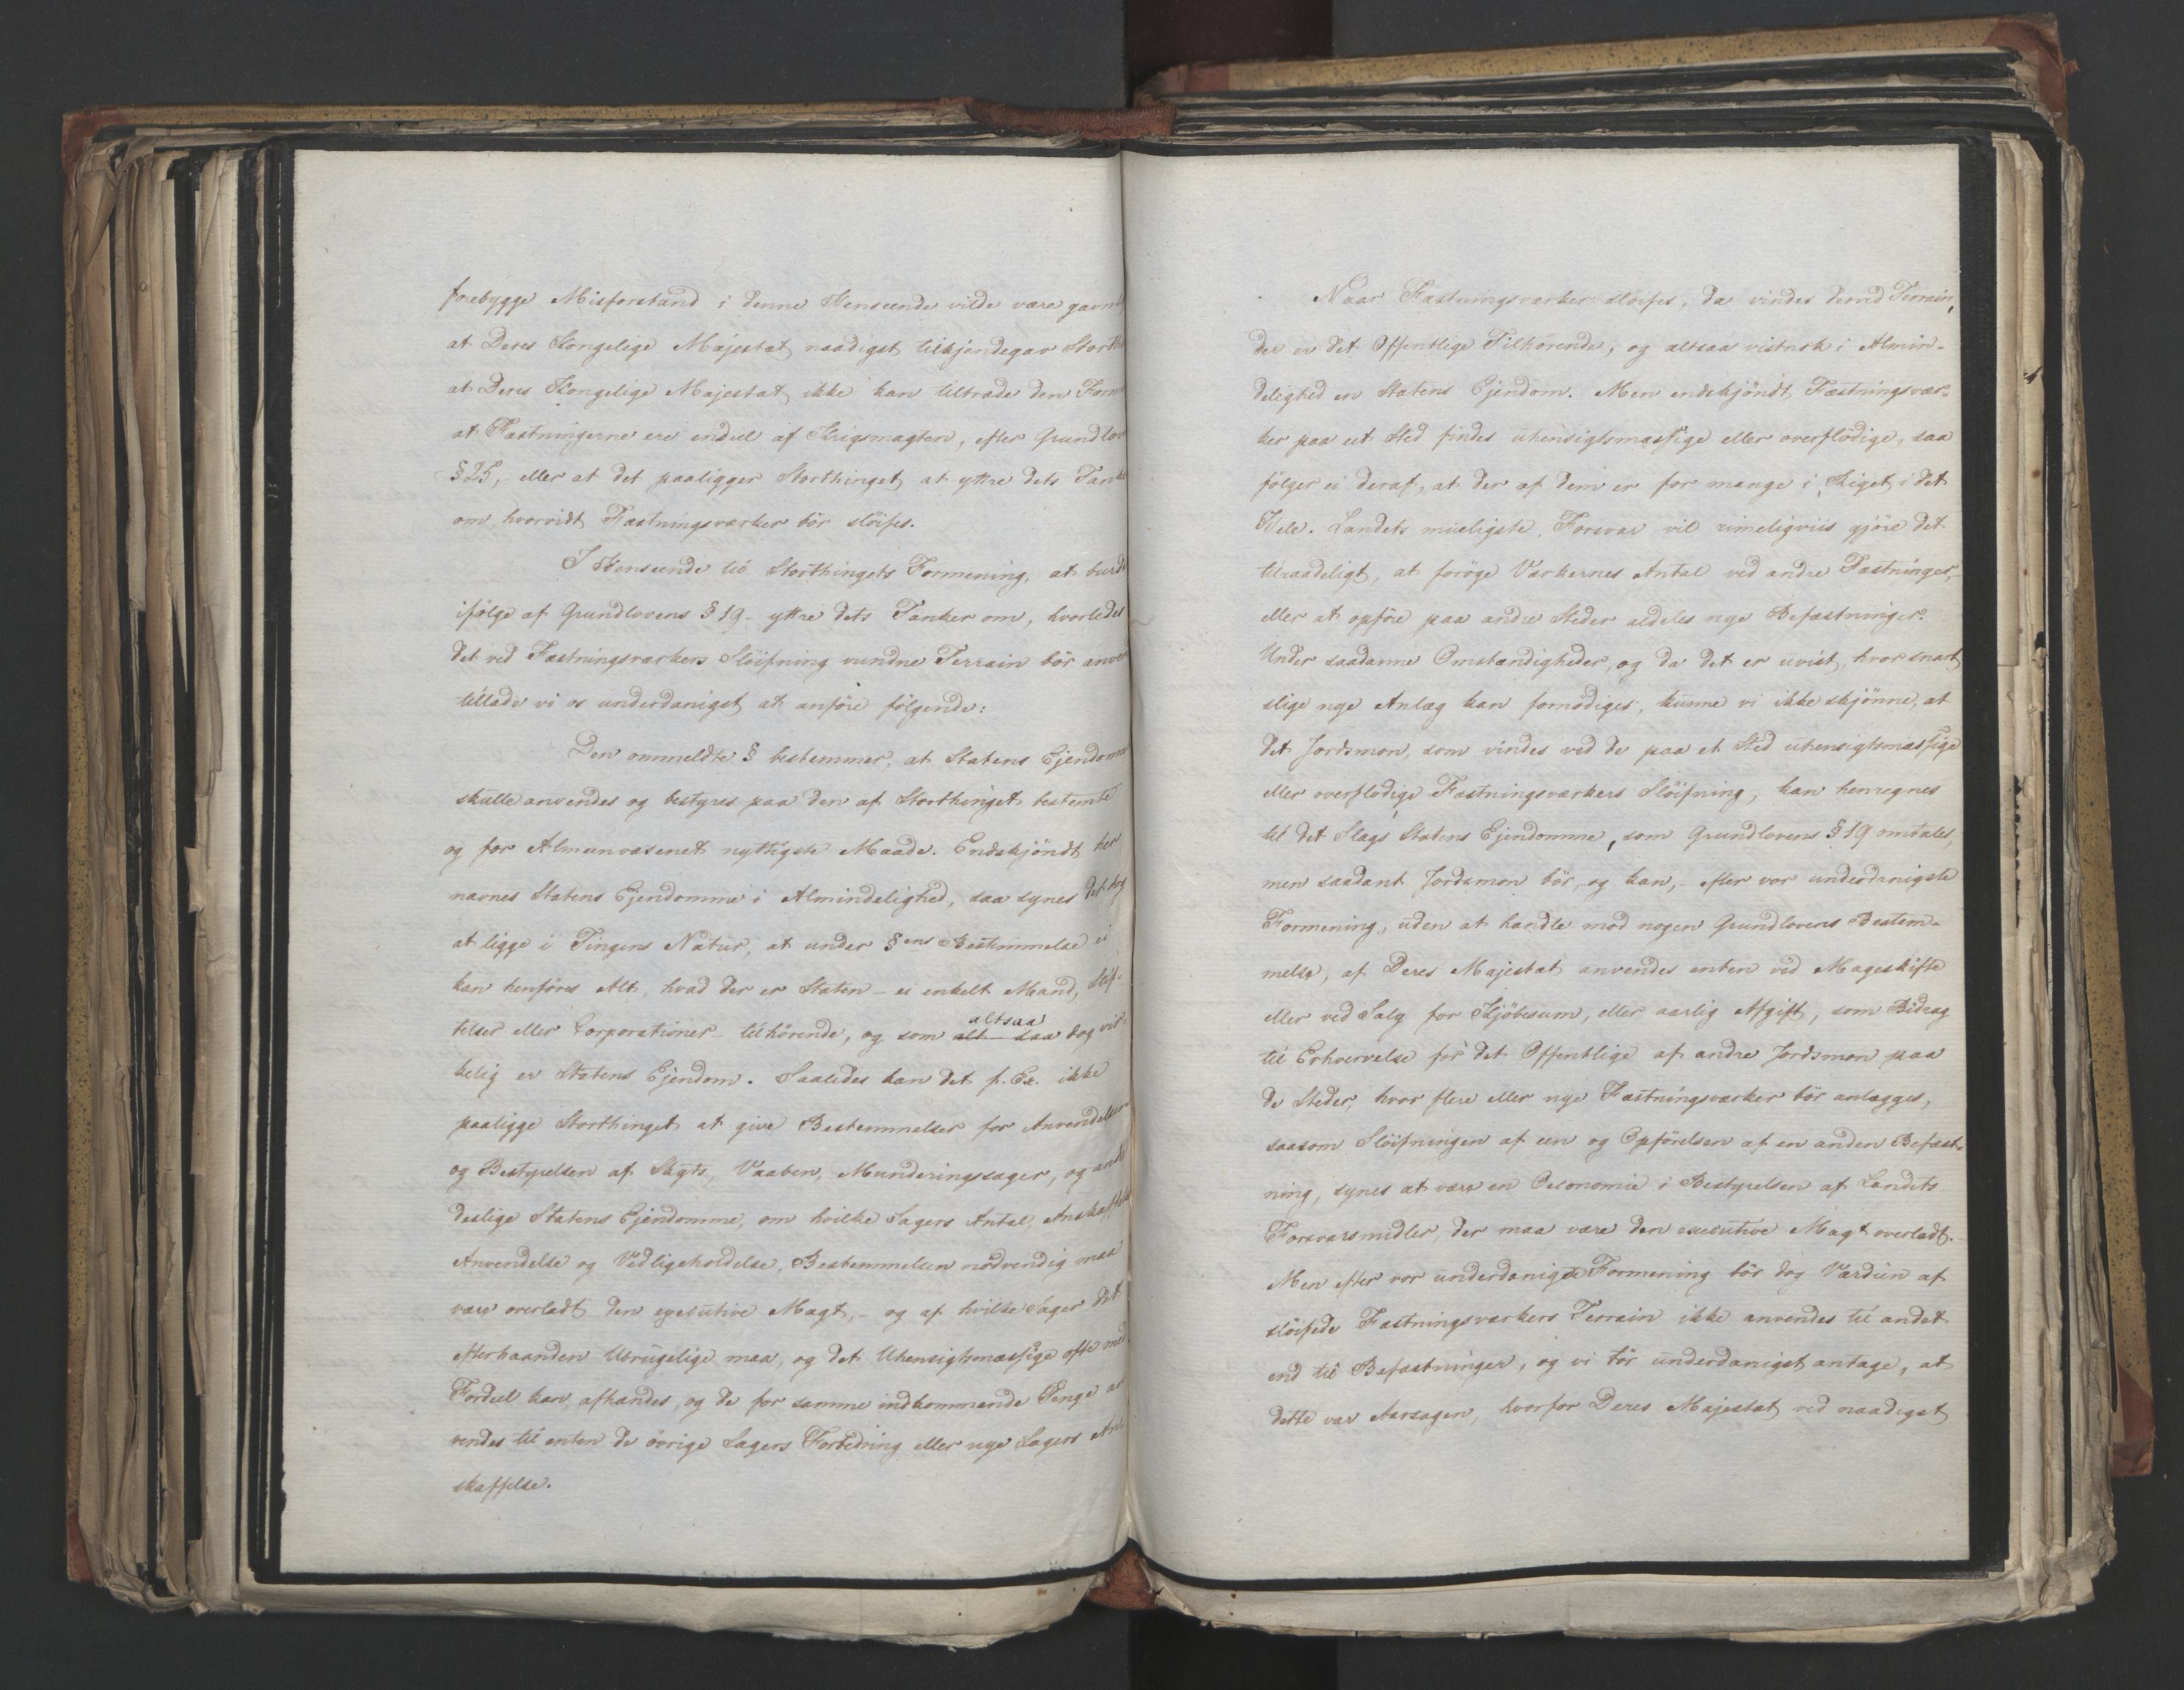 forebygge Misforstand i denne Henseende vilde være gavn
at Deres Kongelige Majestæt naadigst tilkjendegav Storth
at Deres Kongelige Majestæt ikke kan tiltræde den Form
at Fæstningerne ere endeel af Krigsmagten, efter Grundlov
§ 25, - eller at det paaligger Storthinget at yttre dets Tank
om, hvorvidt Fæstningsværker bör slöifes.
I Henseende til Storthingets Formening, at burde
ifölge af Grundlovens § 19 - yttre dets Tanker om, hvorledes
det ved Fæstningsværkers Slöifning vundne Terrain bör anven
tillade vi os underdanigst at anföre fölgende:
Den ommeldte § bestemmer, at Statens Ejendomme
skulle anvendes og bestyres paa den af Storthinget bestemte
og for Almeenvæsenet nyttigste Maade. Endskjöndt her
nævnes Statens Ejendomme i Almindelighed, saa synes det dog
at ligge i Tingens Natur, at under §ens Bestemmelse ei
kan henföres Alt, hvad der er Staten - ei enkelt Mand, Stif-
telser eller Corporationer - tilhörende, og som alt saa altsaa dog vir-
kelig er Statens Ejendom. Saaledes kan det f. Ex. ikke
paaligge Storthinget at give Bestemmelser for Anvendelsen
og Bestyrelsen af Skyts, Vaaben, Munderingssager, og andre
deslige Statens Ejendomme, om hvilke Sagers Antal, Anskaffelse
Anvendelse og Vedligeholdelse, Bestemmelsen nödvendig maa
være overladt den executive Magt, - og af hvilke Sager det
efterhaanden Ubrugelige maa, og det Uhensigtsmæssige ofte med
Fordeel kan afhændes, og de for samme indkommende Penge an
vendes til enten de övrige Sagers Forbedring eller nye Sagers An
skaffelse.
Naar Fæstningsværker slöifes, da vindes derved Terrain,
der er det Offentlige Tilhörende, og altsaa vistnok i Almin-
delighed en Statens Ejendom. Men endskjöndt Fæstningsvær-
ker paa eet Sted findes uhensigtsmæssige eller overflödige, saa
fölger ei deraf, at der af dem er for mange i Riget i det
Hele. Landets mueligste Forsvar vil rimeligviis gjöre det
tilraadeligt, at foröge Værkernes Antal ved andre Fæstninger,
eller at opföre paa andre Steder aldeles nye Befæstninger.
Under saadanne Omstændigheder, og da det er uvist, hvor snart
slige nye Anlæg kan fornödiges, kunne vi ikke skjönne, at
det Jordsmon, som vindes ved de paa et Sted uhensigtsmæssige
eller overflödige Fæstningsværkers Slöifning, kan henregnes
til det Slags Statens Ejendomme, som Grundlovens § 19 omtaler,
men saadant Jordsmon bör, - og kan, - efter vor underdanigste
Formening, uden at handle mod nogen Grundlovens Bestem-
melse, af Deres Majestæt anvendes enten ved Mageskifte
eller ved Salg for Kjöbesum, eller aarlig Afgift, som Bidrag
til Erhvervelse for det Offentlige af andre Jordsmon paa
de Steder, hvor flere eller nye Fæstningsværker bör anlægges,
saasom Slöifningen af een og Opförelsen af en anden Befæst-
ning, synes at være en Oeconomie i Bestyrelsen af Landets
Forsvarsmidler, der maa være den executive Magt overladt. -
Men efter vor underdanigste Formening bör dog Værdien af
slöifede Fæstningsværkers Terrain ikke anvendes til andet
end til Befæstninger, og vi tör underdanigst antage, at
dette var Aarsagen, hvorfor Deres Majestæt ved naadigst